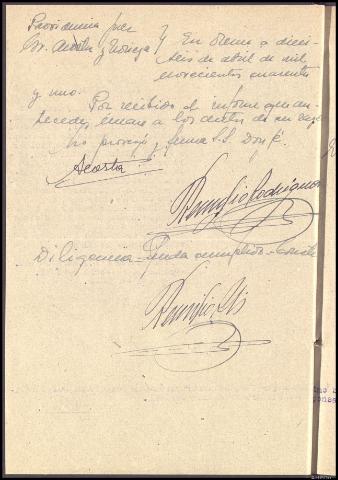 Providencia Juez
Sr. Acosta y Noriega } En Orense a dieci-
séis de abril de mil
novecientos cuarenta
y uno.
Por recibido el informe que an-
tecede, únase a los autos de su razón
Lo proveyó y firma S.S. Doy fé.
Acosta
Remigio Rodriguez
Diligencia - Queda cumplido -
Remigio